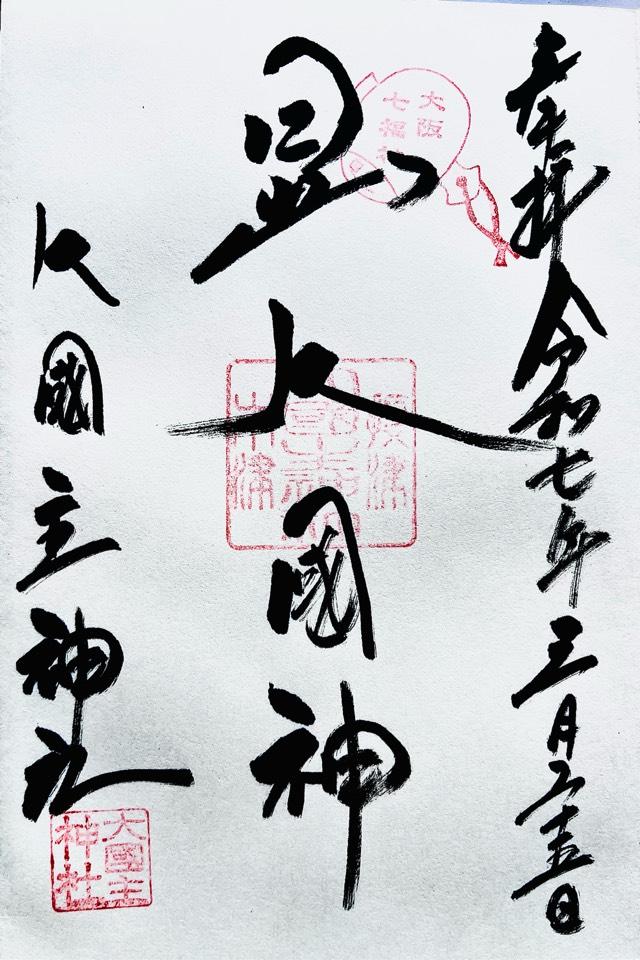 奉拝 令和七年三月二十五日
大阪
七福神
日出大國神
大國主神社
大國主
神社